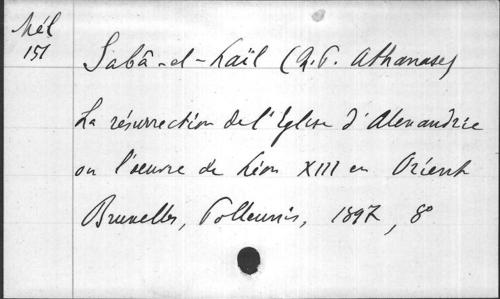 Mél
151
Sabâ-el-Laïl (R.P. Athanase)
La résurrection de l'Eglise d'Alexandrie
ou l'oeuvre de Léon XIII en Orient
Bruxelles, Polleunis, 1897, 8°